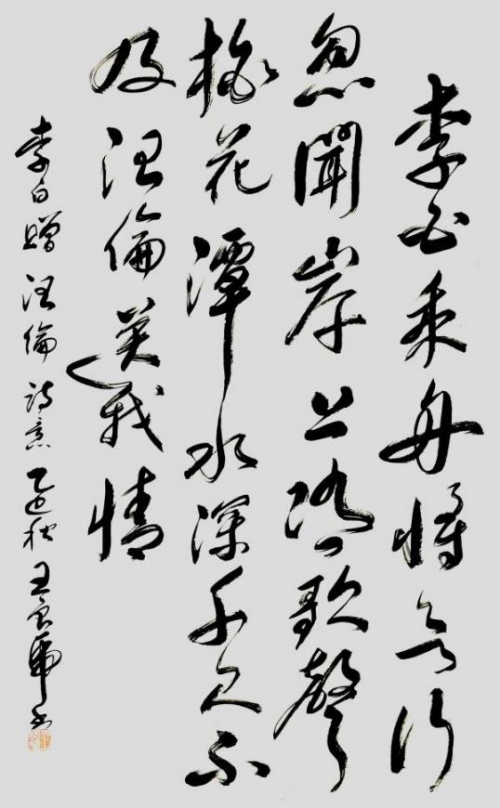 李白乘舟将欲行
忽聞岸上踏歌聲
桃花潭水深千尺不
及汪倫送我情
李白贈汪倫詩意 乙巳秋 王 虎书